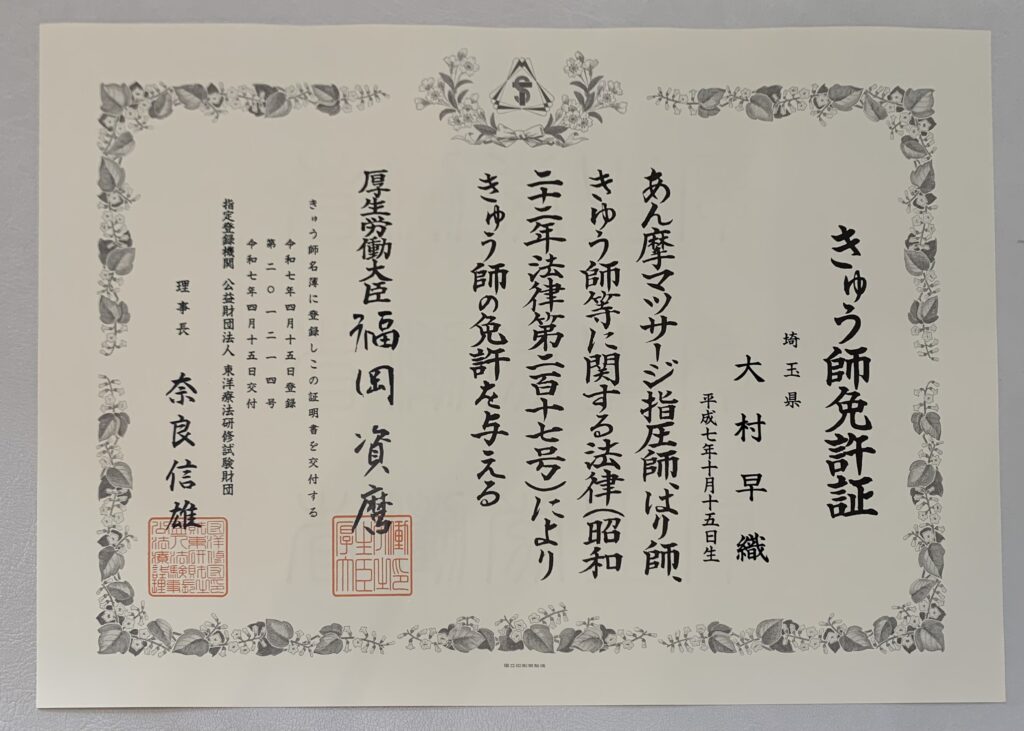 きゅう師免許証
埼玉県
大村早織
平成七年十月十五日生
あん摩マツサージ指圧師、はり師、
きゆう師等に関する法律(昭和
二十二年法律第二百十七号)により
きゅう師の免許を与える
厚生労働大臣 福岡資麿
きゅう師名簿に登録しこの証明書を交付する
令和七年四月十五日登録
第二〇一二一四号
令和七年四月十五日交付
指定登録機関 公益財団法人 東洋療法研修試験財団
理事長 奈良信雄
国立印刷局製造